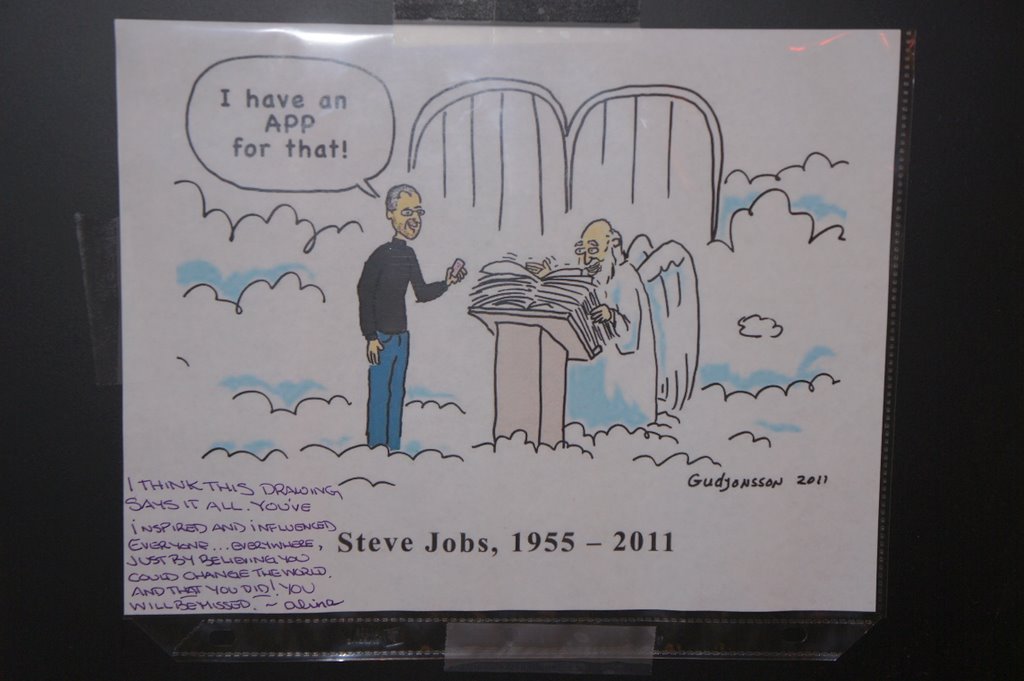 I have an
APP
for that!
Gudjonsson 2011
Steve Jobs, 1955 – 2011
I THINK THIS DRAWING
SAYS IT ALL. YOU'VE
INSPIRED AND INFLUENCED
EVERYONE... EVERYWHERE,
JUST BY BELIEVING YOU
COULD CHANGE THE WORLD.
AND THAT YOU DID! YOU
WILL BE MISSED. ~ alina